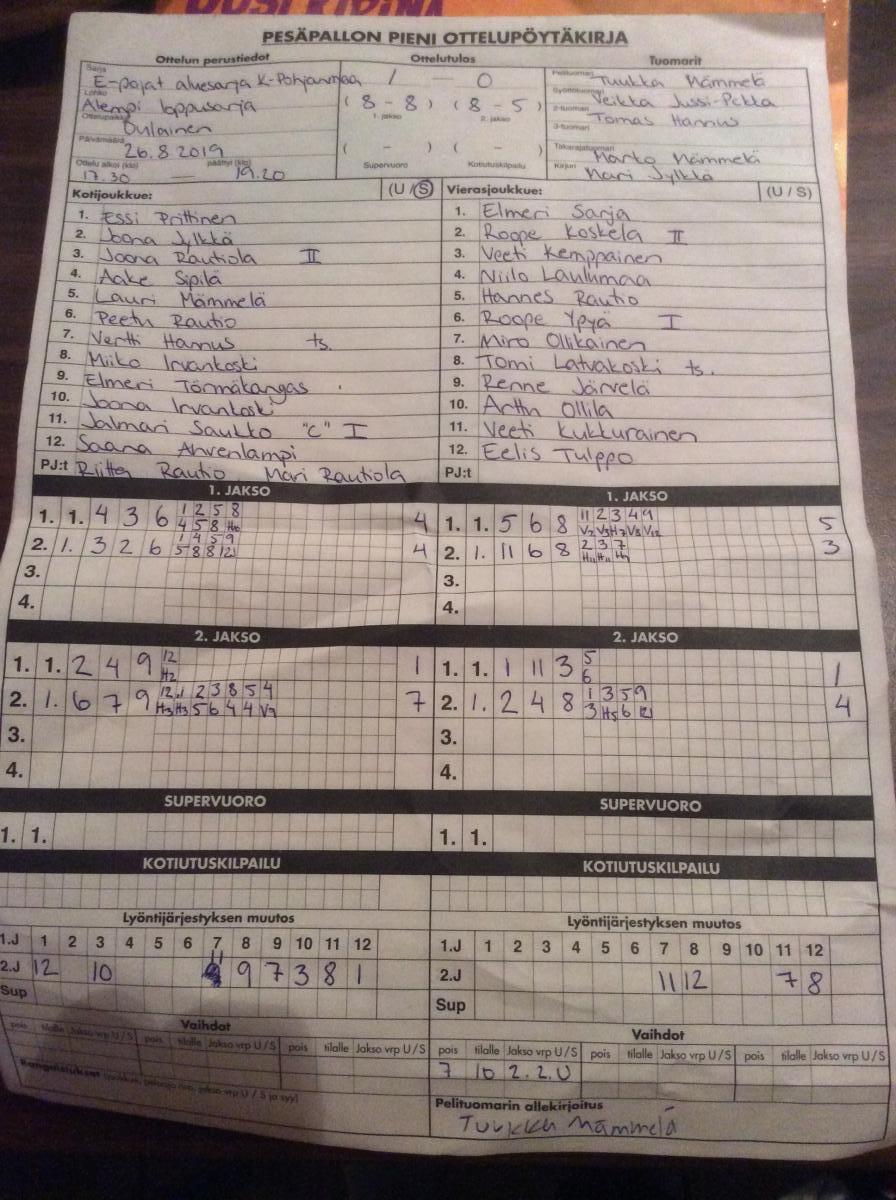 PESÄPALLON PIENI OTTELUPÖYTÄKIRJA
Ottelun perustiedot Ottelutulos Tuomarit
Sarja E-pojat aluesarja K-Pohjanmaa 1 — 0 Pelituomari Tuukka Mämmelä
Lohko Alempi loppusarja (8-8) (8-5) Syöttötuomari Veikka Jussi-Pekka
1. jakso 2. jakso 2-tuomari
Ottelupaikka Oulainen 3-tuomari Tomas Hannus
Päivämäärä 26.8 2019 ( - ) ( - ) Takarajatuomari Marko Mämmelä
Ottelu alkoi (klo) 17.30 — päättyi (klo) 19.20 Supervuoro Kotiutuskilpailu Kirjuri Mari Jylkkä
Kotijoukkue: (U/S) Vierasjoukkue: (U/S)
1. Essi Prittinen 1. Elmeri Sarja
2. Joona Jylkkä 2. Roope Koskela II
3. Joona Rautiola II 3. Veeti Kemppainen
4. Aake Sipilä 4. Niilo Laulumaa
5. Lauri Mämmelä 5. Hannes Rautio
6. Peetu Rautio 6. Roope Ypyä I
7. Vertti Hannus ts. 7. Miro Ollikainen
8. Miiko Irvankoski 8. Tomi Latvakoski ts.
9. Elmeri Törmäkangas 9. Renne Järvelä
10. Joona Irvankoski 10. Arttu Ollila
11. Jalmari Saukko "C" I 11. Veeti Kukkurainen
12. Saana Ahvenlampi 12. Eelis Tulppo
PJ:t Riitta Rautio Mari Rautiola PJ:t
1. JAKSO 1. JAKSO
1. 1. 4 3 6 1 2 5 8 4 1. 1. 5 6 8 11 2 3 4 9 5
4 5 8 H10 V2 V3 H7 V8 V12
2. 1. 3 2 6 1 4 5 9 4 2. 1. 11 6 8 2 3 7 3
5 8 8 12 H11 H11 H9
3. 3.
4. 4.
2. JAKSO 2. JAKSO
1. 1. 2 4 9 12 1 1. 1. 1 11 3 5 1
H2 6
2. 1. 6 7 9 12 11 1 2 3 8 5 4 7 2. 1. 2 4 8 1 3 5 9 4
H3 H3 5 6 4 4 V9 3 H5 6 12
3. 3.
4. 4.
SUPERVUORO SUPERVUORO
1. 1. 1. 1.
KOTIUTUSKILPAILU KOTIUTUSKILPAILU
Lyöntijärjestyksen muutos Lyöntijärjestyksen muutos
1.J 1 2 3 4 5 6 7 8 9 10 11 12 1.J 1 2 3 4 5 6 7 8 9 10 11 12
2.J 12 10 11 9 7 3 8 1 2.J 11 12 7 8
Sup Sup
Vaihdot Vaihdot
pois tilalle Jakso vrp U/S pois tilalle Jakso vrp U/S pois tilalle Jakso vrp U/S pois tilalle Jakso vrp U/S pois tilalle Jakso vrp U/S pois tilalle Jakso vrp U/S
7 10 2.2.U
Rangaistukset (joukkue, pelaaja nro, jakso vrp U/S ja syy)
Pelituomarin allekirjoitus
Tuukka Mämmelä